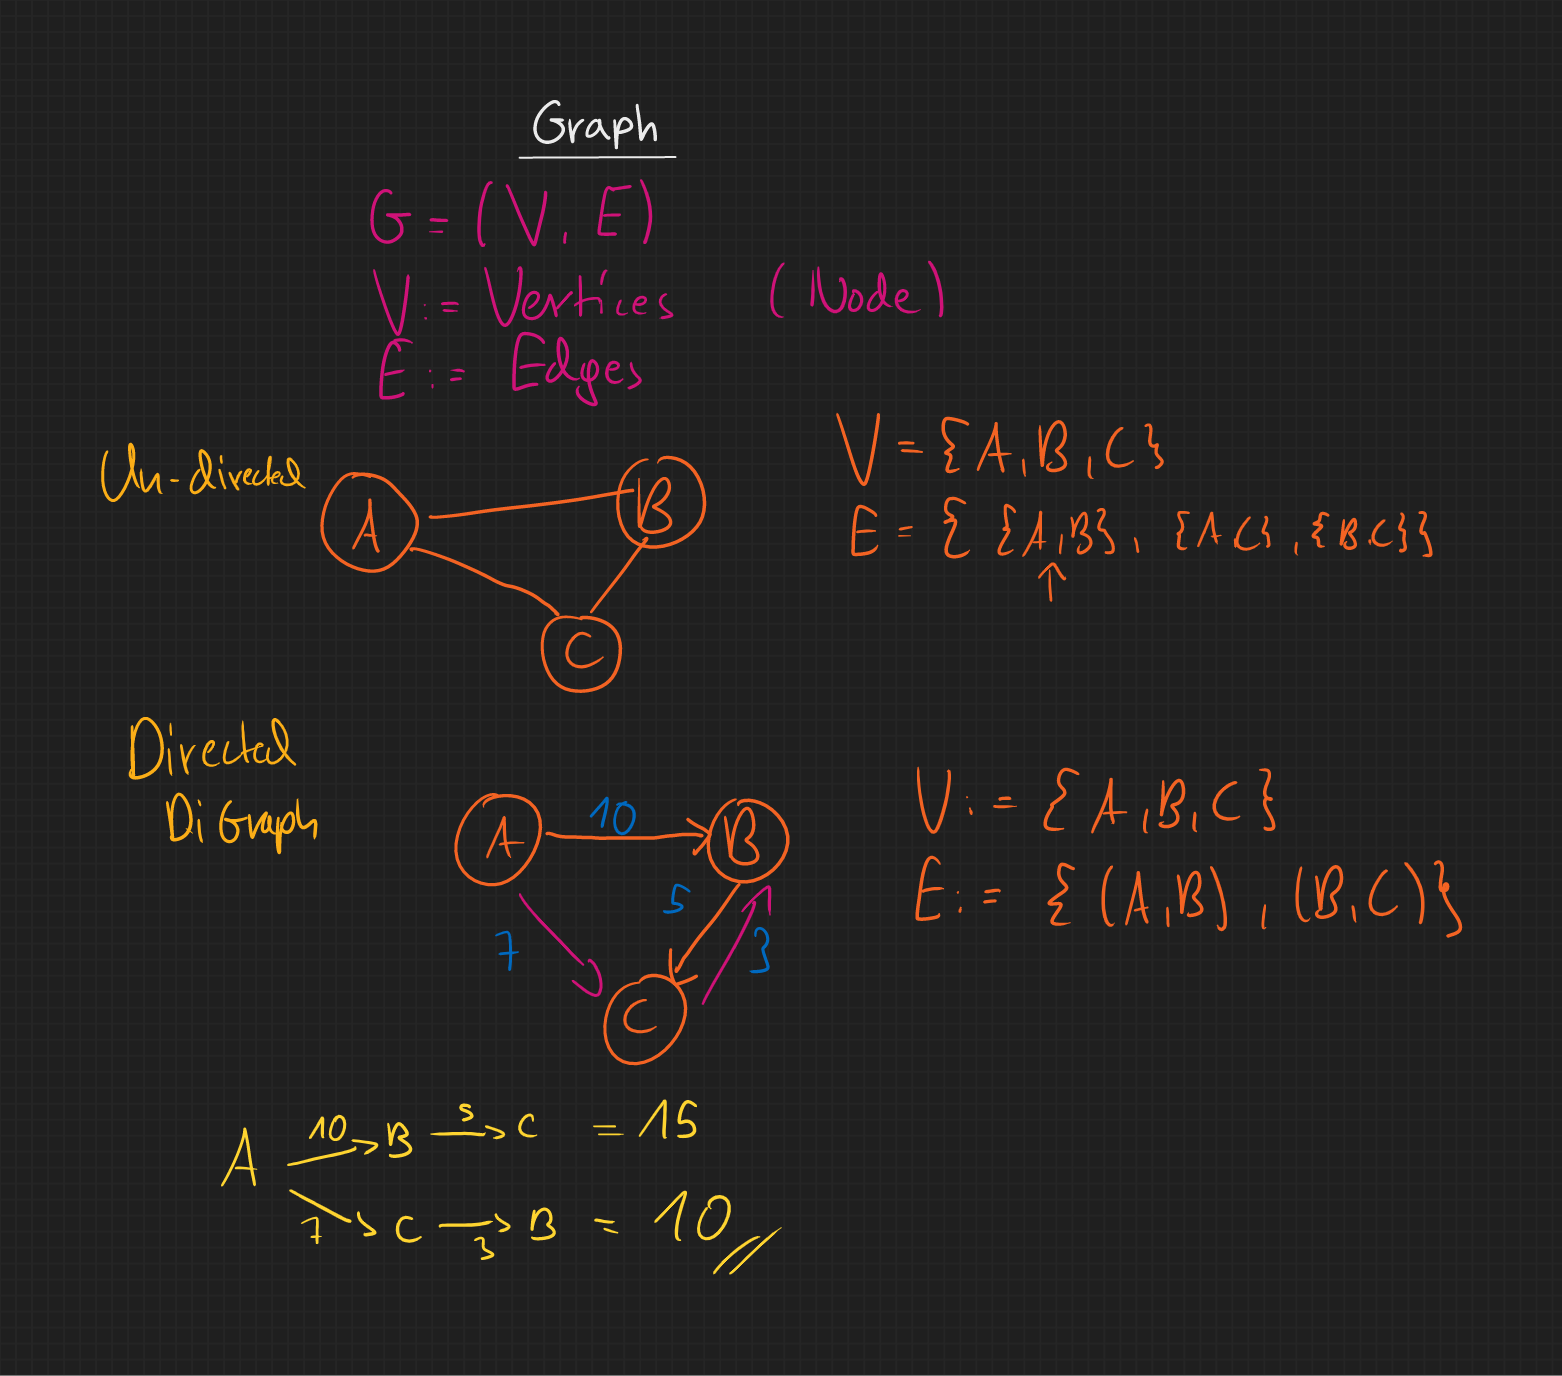 Graph
G = (V, E)
V := Vertices (Node)
E := Edges
Un-directed
A
B
C
V = {A, B, C}
E = { {A,B}, {A,C}, {B,C}}
↑
Directed
DiGraph
A
10
B
5
7
3
C
V := {A, B, C}
E := {(A,B), (B,C)}
A 10→ B 5→ C = 15
7→ C 3→ B = 10